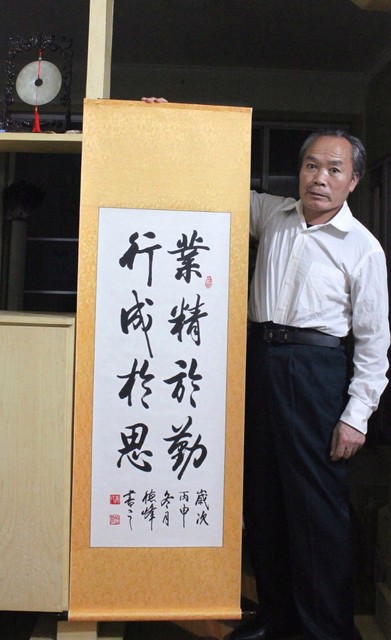 業精於勤
行成於思
歲次
丙申
冬月
德峰
書之